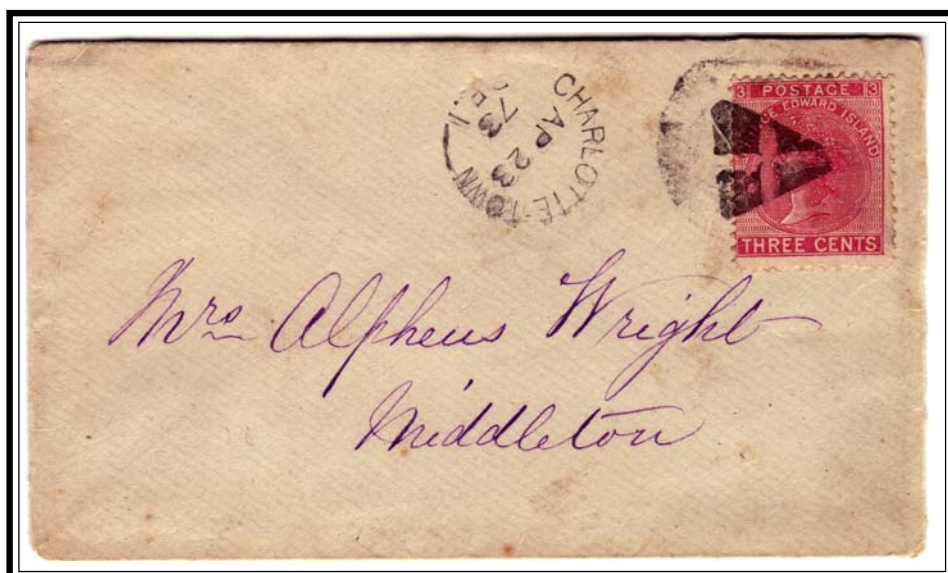 CHARLOTTE-TOWN
AP 23
73
P.E.I.
3 POSTAGE 3
CE EDWARD ISLAND
THREE CENTS
Mrs Alpheus Wright
Middleton